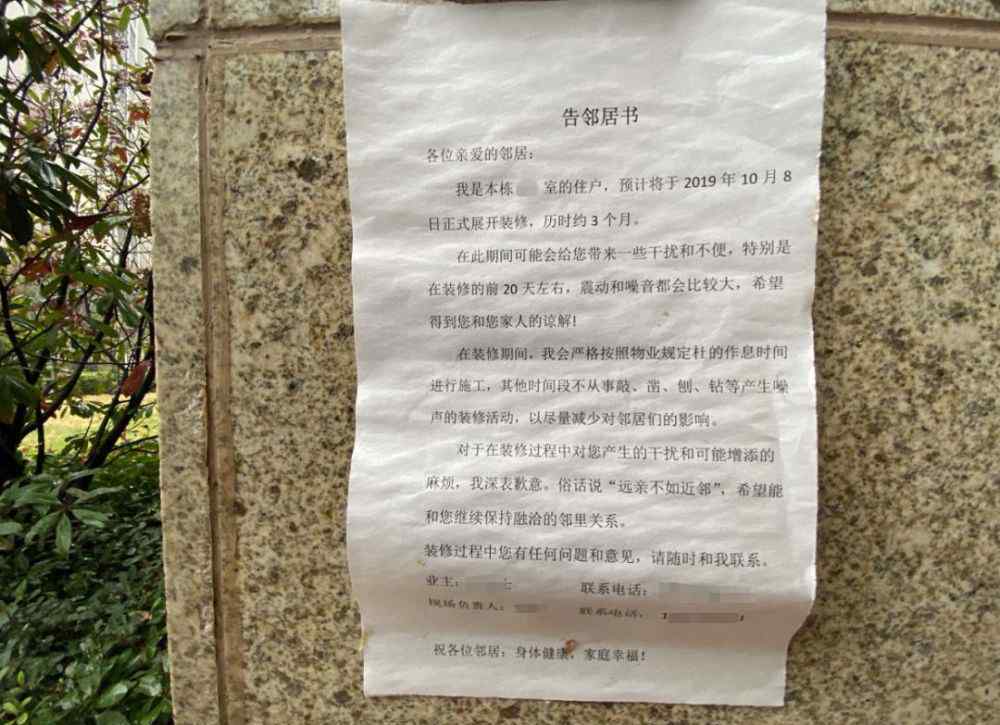 告邻居书
各位亲爱的邻居：
我是本栋 室的住户，预计将于 2019 年 10 月 8
日正式展开装修，历时约 3 个月。
在此期间可能会给您带来一些干扰和不便，特别是
在装修的前 20 天左右，震动和噪音都会比较大，希望
得到您和您家人的谅解！
在装修期间，我会严格按照物业规定杜的作息时间
进行施工，其他时间段不从事敲、凿、刨、钻等产生噪
声的装修活动，以尽量减少对邻居们的影响。
对于在装修过程中对您产生的干扰和可能增添的
麻烦，我深表歉意。俗话说“远亲不如近邻”，希望能
和您继续保持融洽的邻里关系。
装修过程中您有任何问题和意见，请随时和我联系。
业主： 联系电话：
现场负责人： 联系电话：
祝各位邻居：身体健康，家庭幸福！